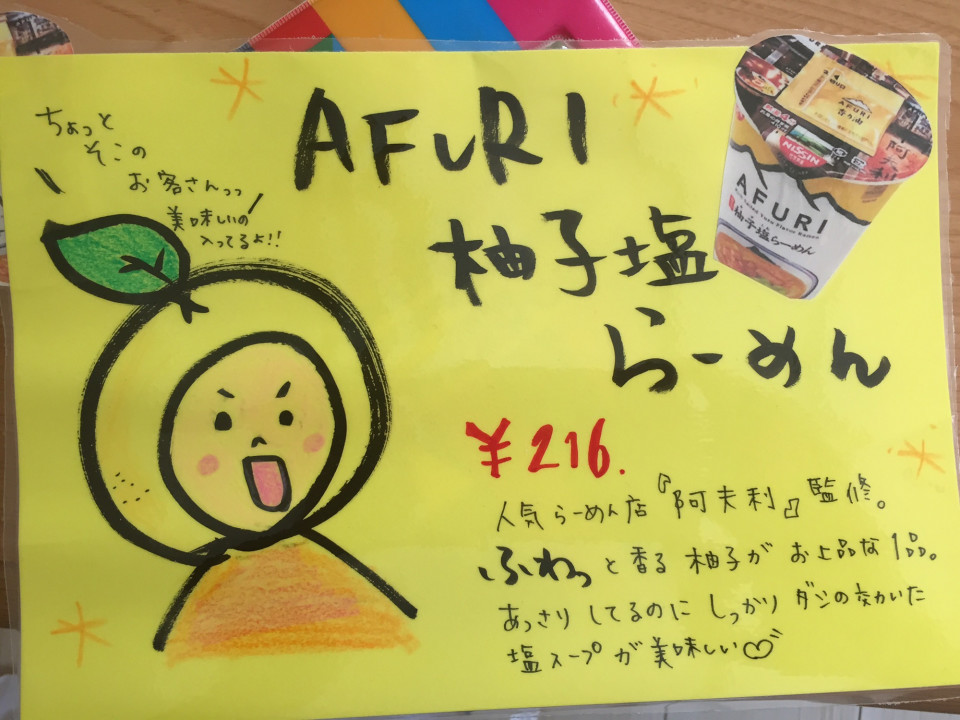 ちょっと
そこの
お客さんっっ
美味しいの
入ってるよ!!
AFURI
柚子塩
らーめん
AFURI
香り油
阿夫利
NISSIN
AFURI
柚子塩らーめん
¥216.
人気らーめん店『阿夫利』監修。
ふわっと香る柚子がお上品な1品。
あっさりしてるのにしっかりダシの効いた
塩スープが美味しい♡